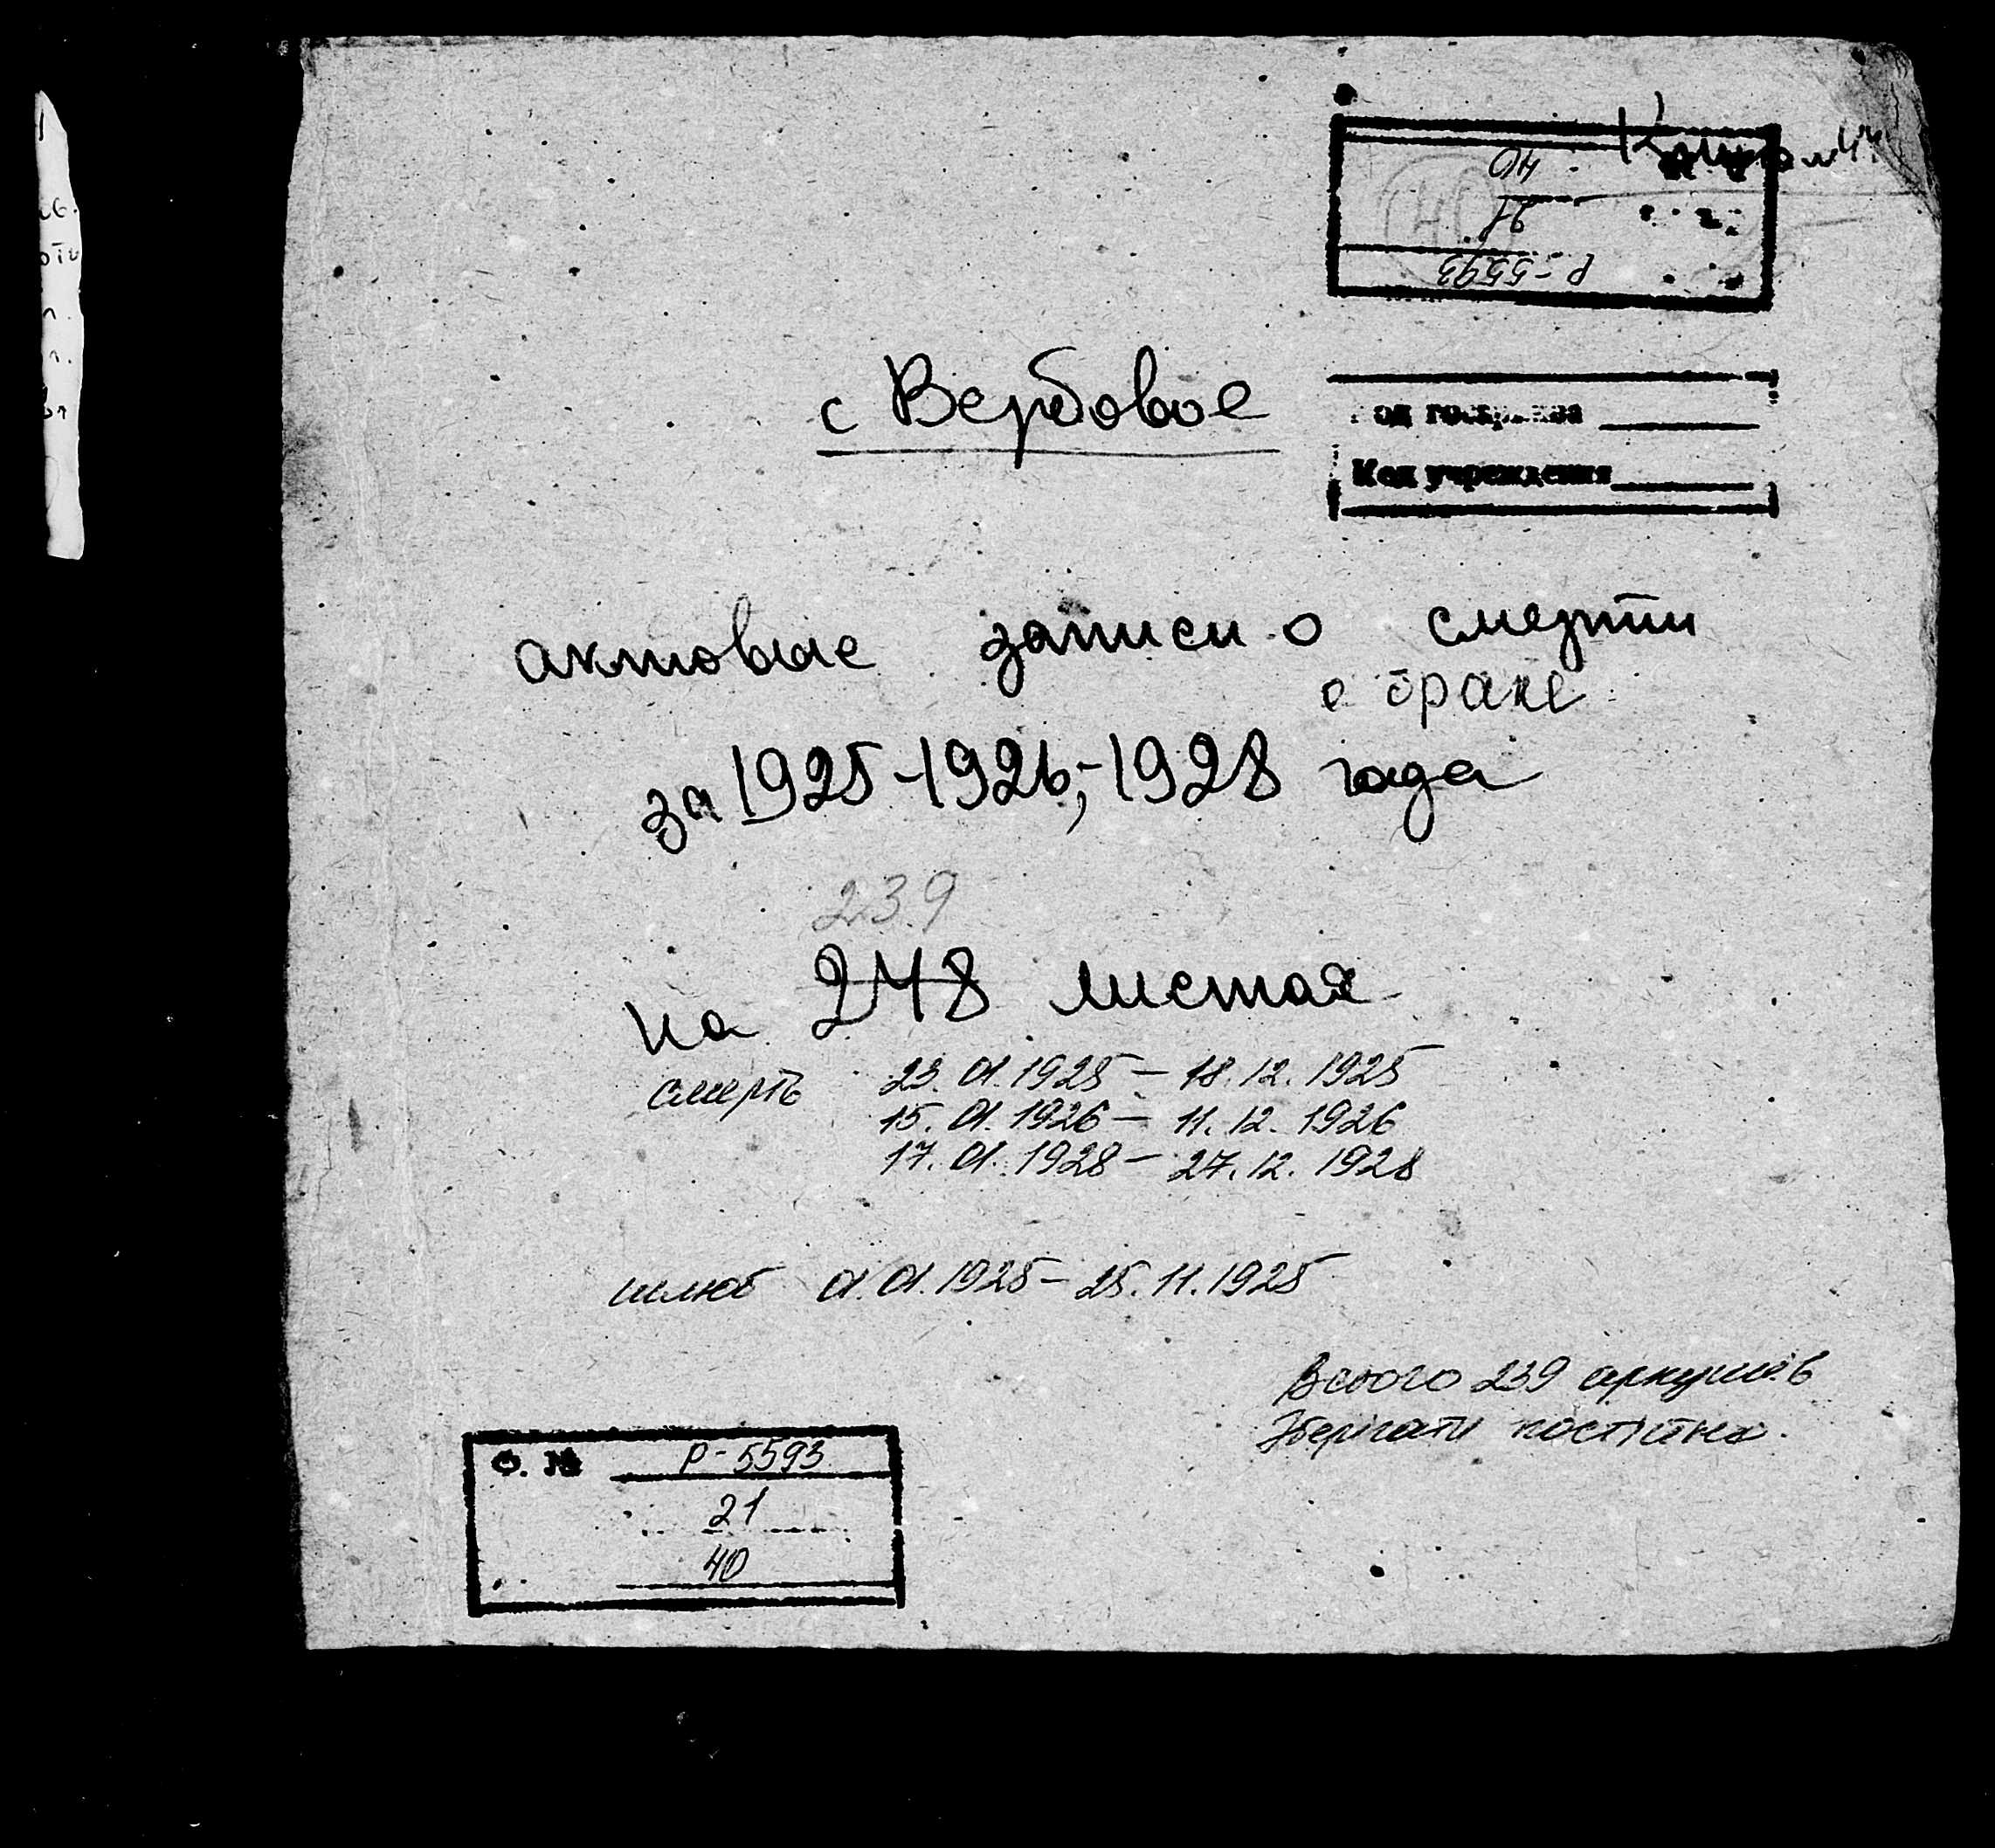 Книга №44
40
21
Р-5593
с Вербовое
Код учреждения
актовые записи о смерти
о браке
за 1925-1926,-1928 года
239
на 248 листах
смерть 23.01.1925 – 18.12.1925
15.01.1926 – 11.12.1926
17.01.1928 – 27.12.1928
шлюб 01.01.1925 – 25.11.1925
Всього 239 аркушів
Зберігати постійно.
Ф. № Р-5593
21
40